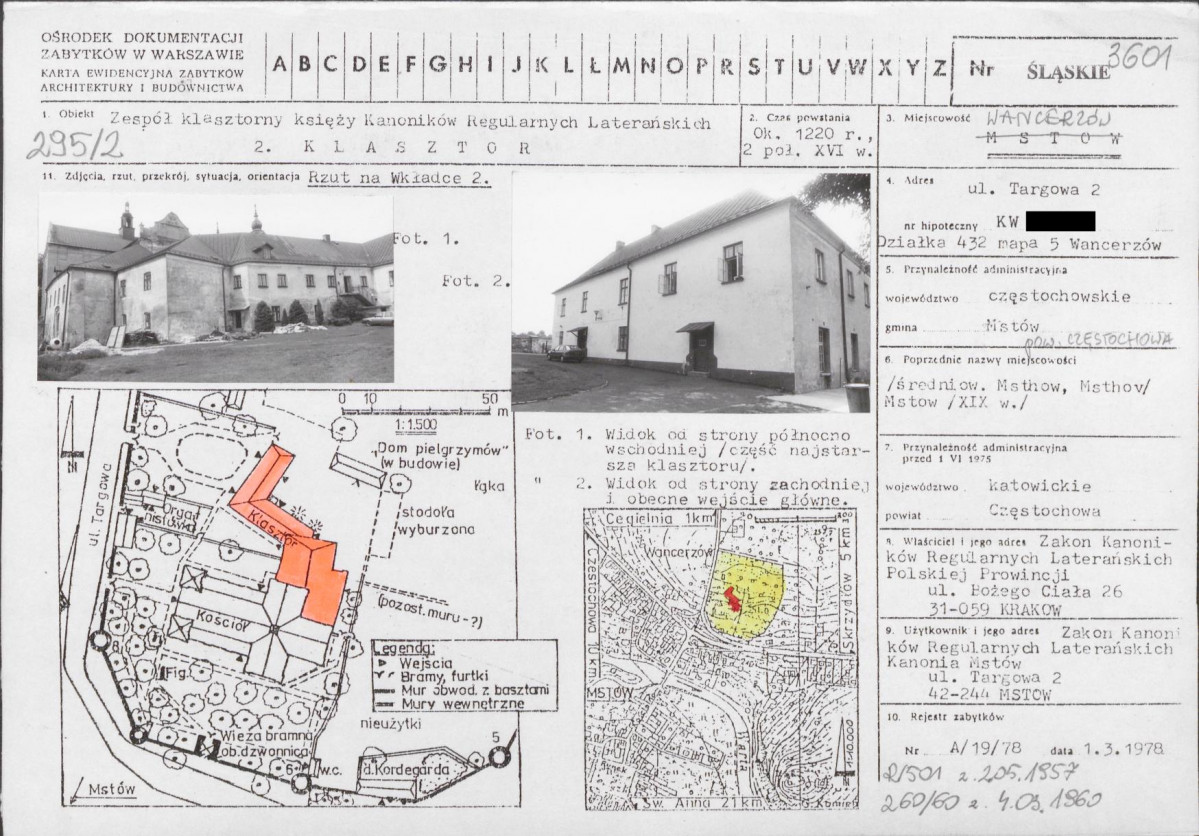 OŚRODEK DOKUMENTACJI
ZABYTKÓW W WARSZAWIE
KARTA EWIDENCYJNA ZABYTKÓW
ARCHITEKTURY I BUDOWNICTWA
A B C D E F G H I J K L Ł M N O P R S T U V W X Y Z
Nr ŚLĄSKIE 3601
1. Obiekt Zespół klasztorny księży Kanoników Regularnych Laterańskich
295/2
2. K L A S Z T O R
2. Czas powstania
Ok. 1220 r.,
2 poł. XVI w.
3. Miejscowość WANCERZÓW
M S T O W
11. Zdjęcia, rzut, przekrój, sytuacja, orientacja Rzut na Wkładce 2.
Fot. 1.
Fot. 2.
4. Adres
ul. Targowa 2
nr hipoteczny KW
Działka 432 mapa 5 Wancerzów
5. Przynależność administracyjna
województwo częstochowskie
gmina Mstów
pow. CZĘSTOCHOWA
6. Poprzednie nazwy miejscowości
/średniow. Msthow, Msthov/
Mstow /XIX w./
7. Przynależność administracyjna
przed 1 VI 1975
województwo katowickie
powiat Częstochowa
8. Właściciel i jego adres Zakon Kanoni-
ków Regularnych Laterańskich
Polskiej Prowincji
ul. Bożego Ciała 26
31-059 KRAKOW
9. Użytkownik i jego adres Zakon Kanoni
ków Regularnych Laterańskich
Kanonia Mstów
ul. Targowa 2
42-244 MSTOW
10. Rejestr zabytków
Nr A/19/78 data 1.3.1978
R/501 z 2.05.1957
260/60 z 4.03.1960
Fot. 1. Widok od strony północno
wschodniej /część najstar-
sza klasztoru/.
" 2. Widok od strony zachodniej
i obecne wejście główne.
0 10 50 m
1:1.500
N
"Dom pielgrzymów"
(w budowie)
łąka
stodoła
wyburzona
ul. Targowa
Orga-
nistówka
Klasztor
Kościół
(pozost. muru -?)
8
Fig.
Legenda:
Wejścia
Bramy, furtki
Mur obwod. z basztami
Mury wewnętrzne
nieużytki
Wieża bramna
ob. dzwonnica
7
6
w.c.
d. Kordegarda
5
Mstów
Cegielnia 1km
Wancerzów
Częstochowa 10km
Skrzydlów 5 km
MSTÓW
Warta
N
1:10.000
Św. Anna 21km